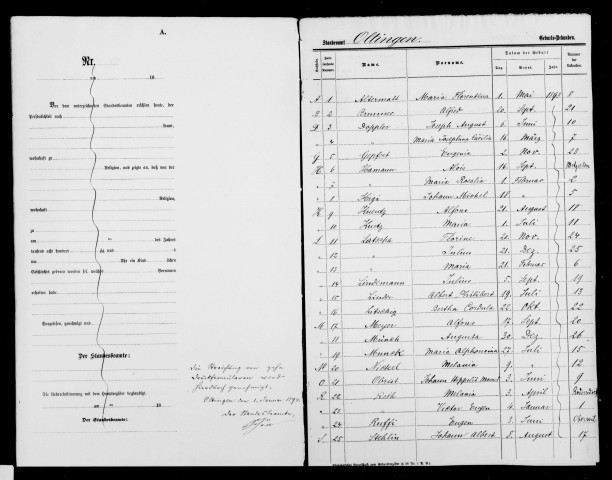 A.
Nr.
am 18
Vor dem unterzeichneten Standesbeamten erschien heute, der
Persönlichkeit nach
kannt,
wohnhaft zu
Religion, und zeigte an, daß von der
Religion,
wohnhaft
zu
am des Jahres
tausend acht hundert und
um Uhr ein Kind
Geschlechts geboren worden sei, welches Vornamen
erhalten habe.
Vorgelesen, genehmigt und
Der Standesbeamte:
Die Übereinstimmung mit dem Hauptregister beglaubigt
am 18
Der Standesbeamte.
Oltingen den 1. Januar 1894
Der Standesbeamte
Standesamt Oltingen. Geburts-Urkunden.
Datum der Geburt
Name. Vorname. Tag. Monat. Jahr.
A 1 Altermatt Maria Florentina 1. Mai 1893 8
B 2 Brunner Alfred 20. Sept. 21
D 3 Doppler Joseph August 6 Juni 10
4 " Maria Josephina 16. März 7
G 5 Gepfert Eugenia 2. Nov. 23
H 6 Hamann Alois 16. Sept.
7 " Maria Rosalia 1. Februar 2
8 Higi Johann Michel 11 " 5
K 9 Kuentz Alfons 21. August 18
10 Kuntz Maria 1. Juli 11
L 11 Latscha Florine 20. Nov. 24
12 " Julius 21. Dez. 25
13 " Maria 21. Februar 6
14 Lindemann Julius 5. Sept. 19
15 Linder Albert Philibert 19. Juli 13
16 Litschig Bertha Cordula 22. Okt. 22
M 17 Meyer Alfons 17. Sept. 20
18 Münch Augusta 30. Dez. 26
19 Munck Maria Alphonsina 27. Juli 15
N 20 Nickel Melania 9. " 12
O 21 Obrist Johann Hippolit 3. Juni 9
R 22 Melania 3. April
23 " Viktor Eugen 4. Januar 1
24 Ruffi Eugen 2. Juni
S 25 Stehlin Johann Albert 5. August 17